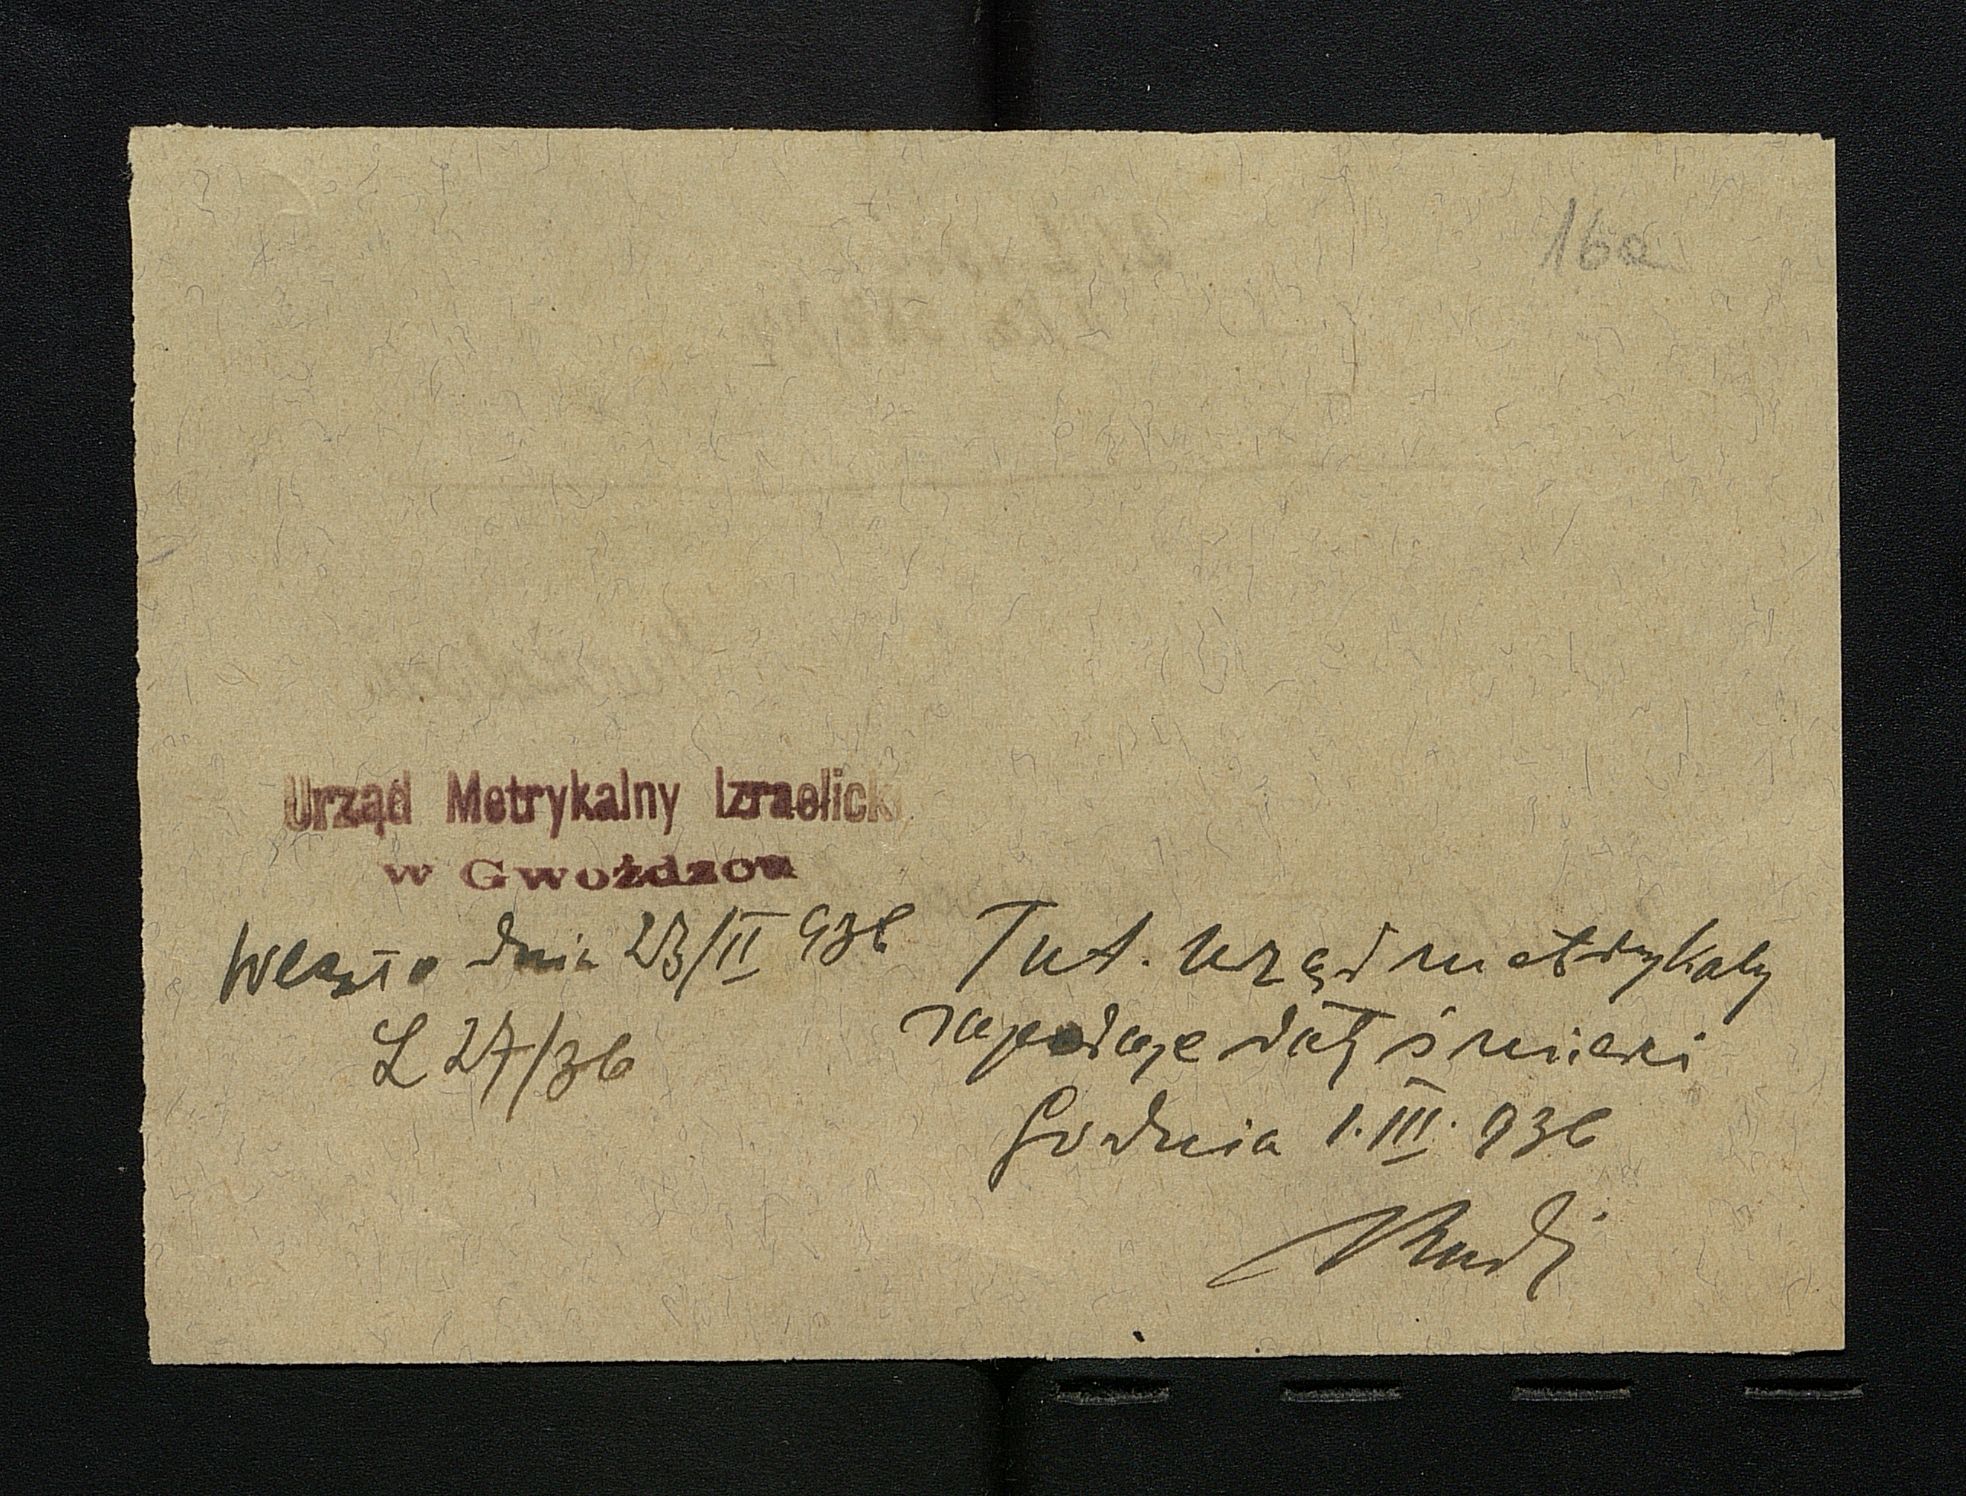 16a
Urząd Metrykalny Izraelicki
w Gwoźdzcu
Weszło dnia 23/II 936
L 27/36
Tut. Urząd metrykaly
zapodaje datę śmierci
Go dnia 1.III.936